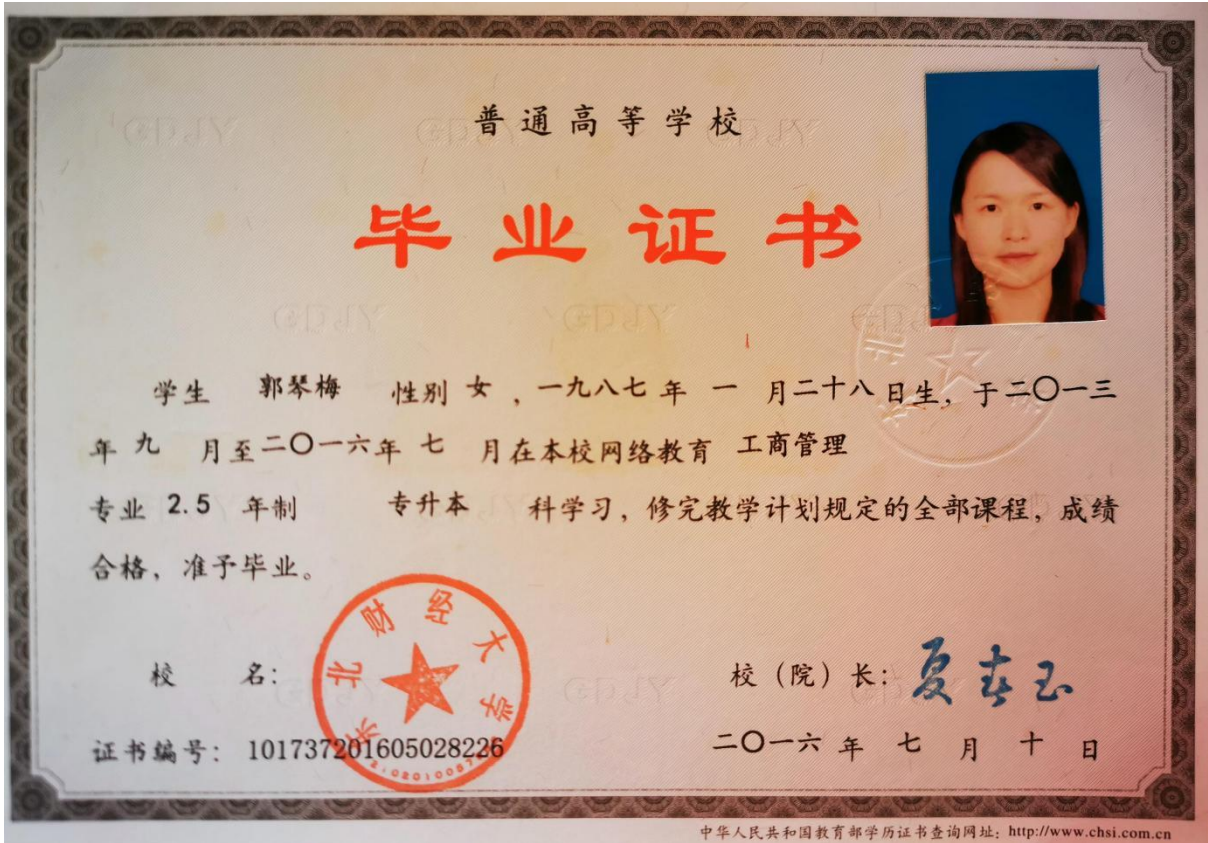 普通高等学校
毕业证书
学生 郭琴梅 性别 女 ，一九八七年 一 月二十八日生，于二〇一三
年 九 月至二〇一六年 七 月在本校网络教育 工商管理
专业 2.5 年制 专升本 科学习，修完教学计划规定的全部课程，成绩
合格，准予毕业。
东北财经大学
校 名：
校（院）长：夏春玉
证书编号：101737201605028226
二〇一六 年 七 月 十 日
中华人民共和国教育部学历证书查询网址：http://www.chsi.com.cn